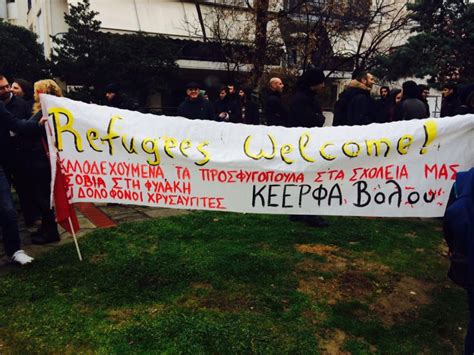 Refugees Welcome!
ΚΑΛΟΔΕΧΟΥΜΕΝΑ ΤΑ ΠΡΟΣΦΥΓΟΠΟΥΛΑ ΣΤΑ ΣΧΟΛΕΙΑ ΜΑΣ
ΣΟΒΙΑ ΣΤΗ ΦΥΛΑΚΗ
ΔΟΛΟΦΟΝΟΙ ΧΡΥΣΑΥΓΙΤΕΣ
ΚΕΕΡΦΑ Βόλου